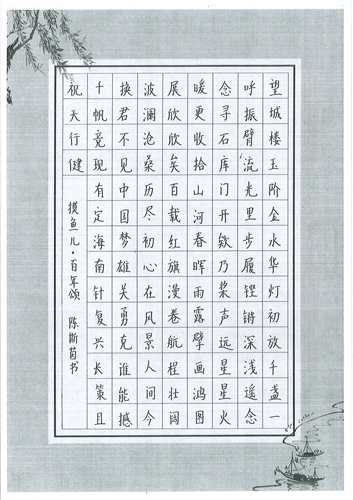 望城楼玉阶金水华灯初放千盏一
呼振臂流光里步履铿锵深浅遥念
念寻石库门开欸乃桨声远星星火
暖更收拾山河春晖雨露擘画鸿图
展欣欣矣百载红旗漫卷航程壮阔
波澜沧桑历尽初心在风景人间今
换君不见中国梦雄关勇克谁能撼
千帆竞现有定海南针复兴长策且
祝天行健 摸鱼儿·百年颂 陈斯茵书